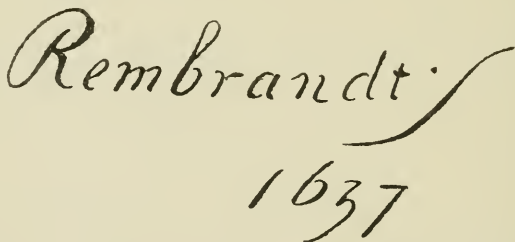 Rembrandt·f
1637